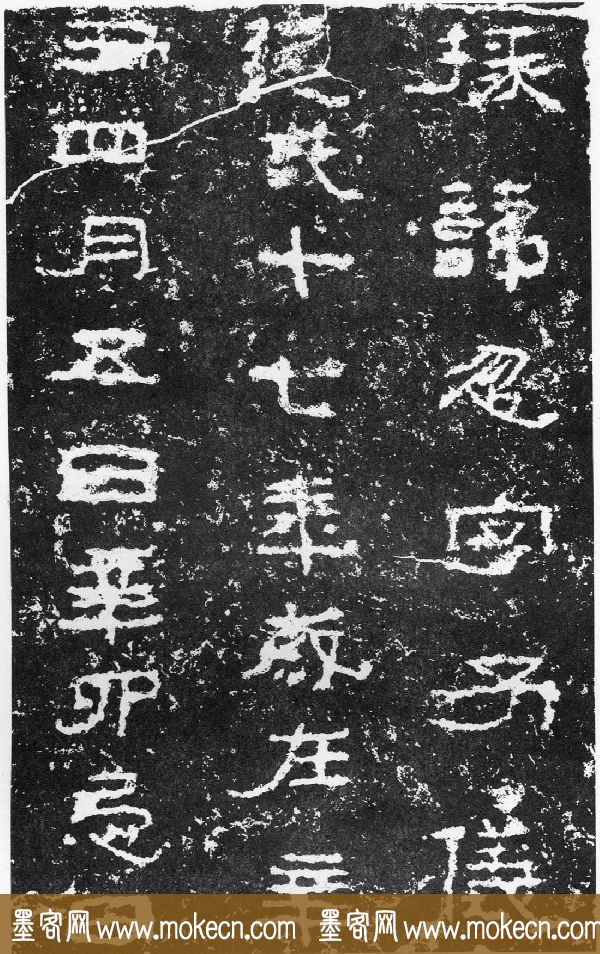 掾諱忽字子儀
建武十七年歲在辛
丑四月五日辛卯忌日
墨客网 www.mokecn.com 墨客网 www.mokecn.com